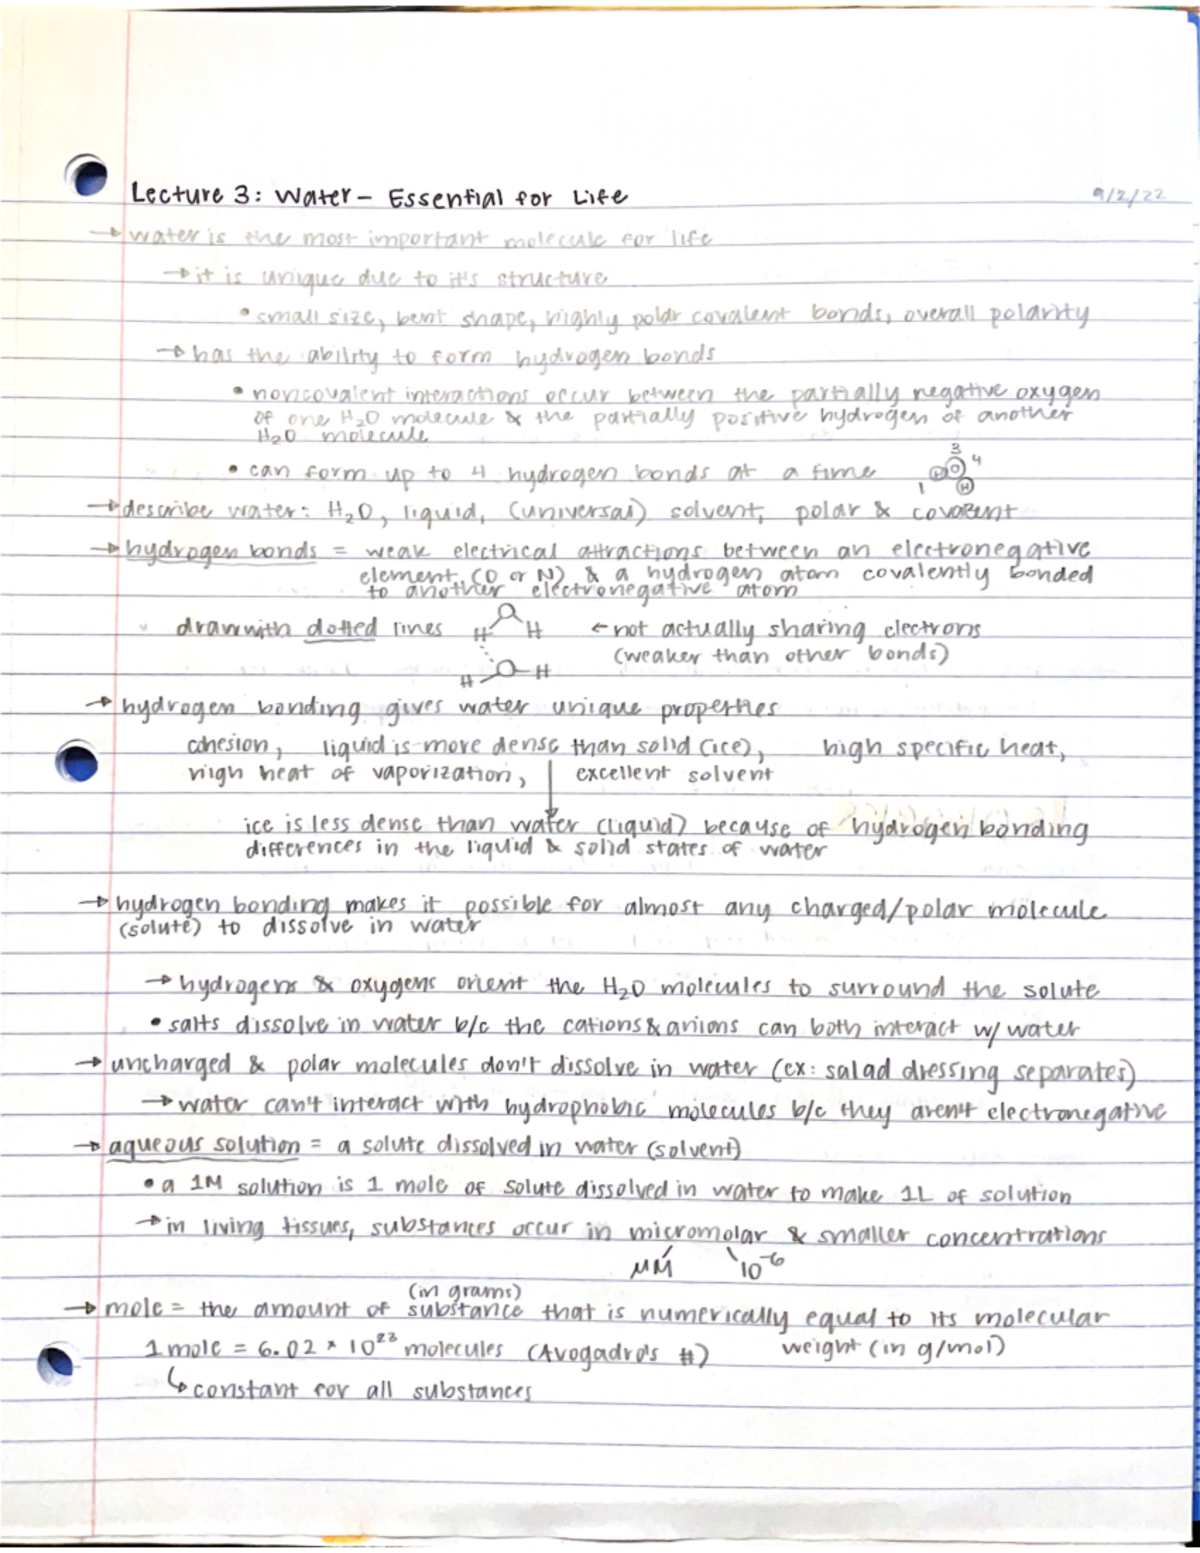 Lecture 3: Water - Essential for Life 9/2/22
→ water is the most important molecule for life
→ it is unique due to it's structure
• small size, bent shape, highly polar covalent bonds, overall polarity
→ has the ability to form hydrogen bonds
• noncovalent interactions occur between the partially negative oxygen
of one H₂O molecule & the partially positive hydrogen of another
H₂O molecule
• can form up to 4 hydrogen bonds at a time 1 H O H 3 4
→ describe water: H₂O, liquid, (universal) solvent, polar & covalent
→ hydrogen bonds = weak electrical attractions between an electronegative
element (O or N) & a hydrogen atom covalently bonded
to another electronegative atom
draw with dotted lines H O H ← not actually sharing electrons
(weaker than other bonds)
H O H
→ hydrogen bonding gives water unique properties
cohesion, liquid is more dense than solid (ice), high specific heat,
high heat of vaporization, excellent solvent
ice is less dense than water (liquid) because of hydrogen bonding
differences in the liquid & solid states of water
→ hydrogen bonding makes it possible for almost any charged/polar molecule
(solute) to dissolve in water
→ hydrogens & oxygens orient the H₂O molecules to surround the solute
• salts dissolve in water b/c the cations & anions can both interact w/ water
→ uncharged & polar molecules don't dissolve in water (ex: salad dressing separates)
→ water can't interact with hydrophobic molecules b/c they aren't electronegative
→ aqueous solution = a solute dissolved in water (solvent)
• a 1M solution is 1 mole of solute dissolved in water to make 1L of solution
→ in living tissues, substances occur in micromolar & smaller concentrations
µM 10⁻⁶
(in grams)
→ mole = the amount of substance that is numerically equal to its molecular
1 mole = 6.02 × 10²³ molecules (Avogadro's #) weight (in g/mol)
↳ constant for all substances